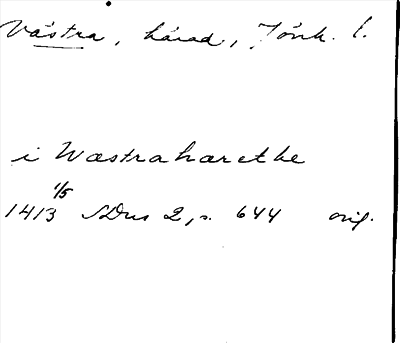 Västra, härad, Jönk. l.
i Wæstrahærethe
1413 1/5 SDns 2, s. 644 orig.